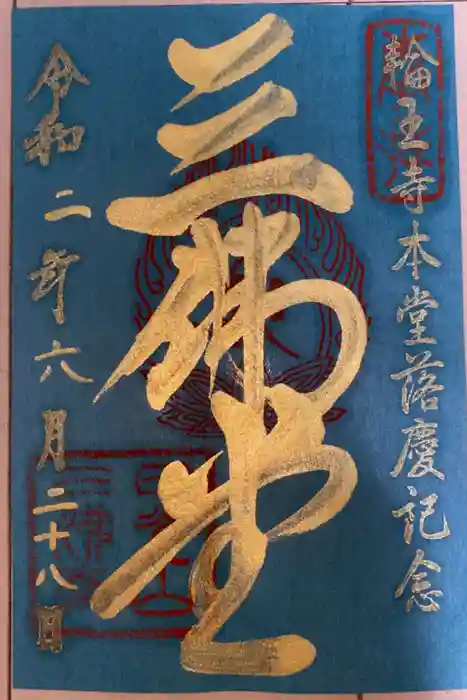 輪王寺本堂落慶記念
三佛堂
令和二年六月二十八日